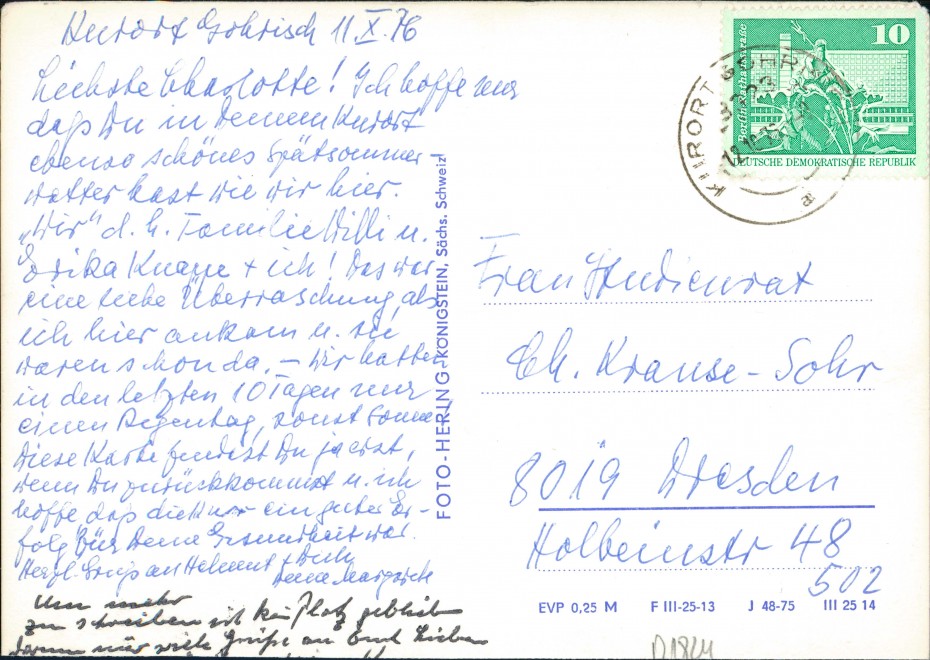 Kurort Gohrisch 11.X.76
Liebste Charlotte! Ich hoffe nur
daß Du in Deinem Kurort
ebenso schönes Spätsommer-
wetter hast wie wir hier.
„Wir“ d. h. Familie Willi u.
Erika Knappe + ich! Das war
eine liebe Überraschung, als
ich hier ankam u. sie
waren schon da. – Wir hatten
in den letzten 10 Tagen nur
einen Regentag, sonst Sonne
Diese Karte findest Du ja erst,
wenn Du zurückkommst u. ich
hoffe, daß die Kur ein guter Er-
folg für Deine Gesundheit war.
Herzl. Gruß an Helmut + Dich
Deine Margarete
Um mehr
zu schreiben ist kein Platz geblieben
darum nur viele Grüße an Euch Lieben
FOTO-HERING-KÖNIGSTEIN, Sächs. Schweiz
10
DEUTSCHE DEMOKRATISCHE REPUBLIK
KURORT GOHRISCH
8323
a
Frau Studienrat
Ch. Krause-Sohr
8019 Dresden
Holbeinstr 48
502
EVP 0,25 M F III-25-13 J 48-75 III 25 14
D1824